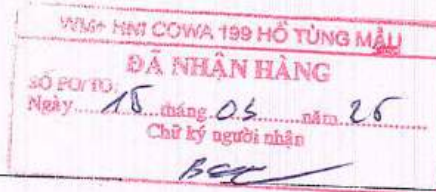 WM+ HNI COWA 199 HỒ TÙNG MẬU
ĐÃ NHẬN HÀNG
SỐ PO/TO:
Ngày 15 tháng 05 năm 25
Chữ ký người nhận